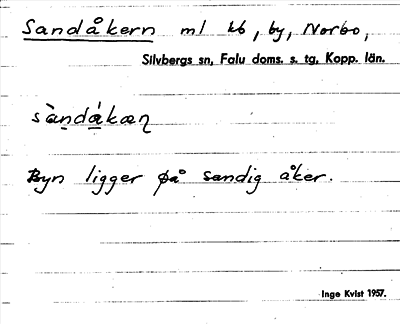 Sandåkern ml kb, by, Norbo,
Silvbergs sn, Falu doms. s. tg, Kopp. län.
sàndákæɳ
Byn ligger på sandig åker.
Inge Kvist 1957.